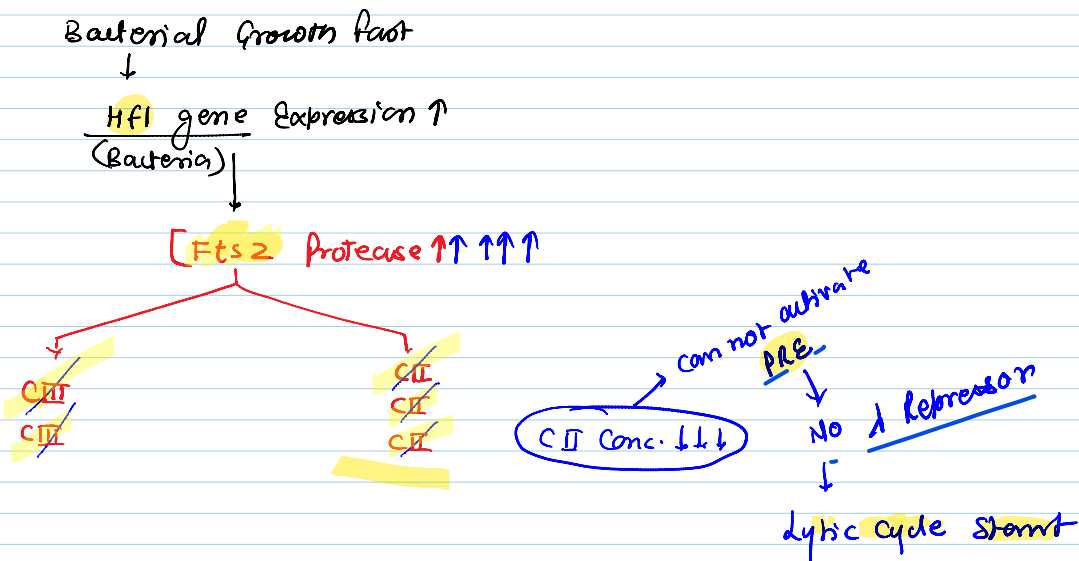 Bacterial Growth fast
↓
Hfl gene Expression ↑
(Bacteria)
↓
[Fts2 Protease ↑↑ ↑↑↑
CIII CII
CIII CII
CII
CII Conc. ↓↓↓
can not activate
PRE
No λ Repressor
↓
Lytic Cycle Start